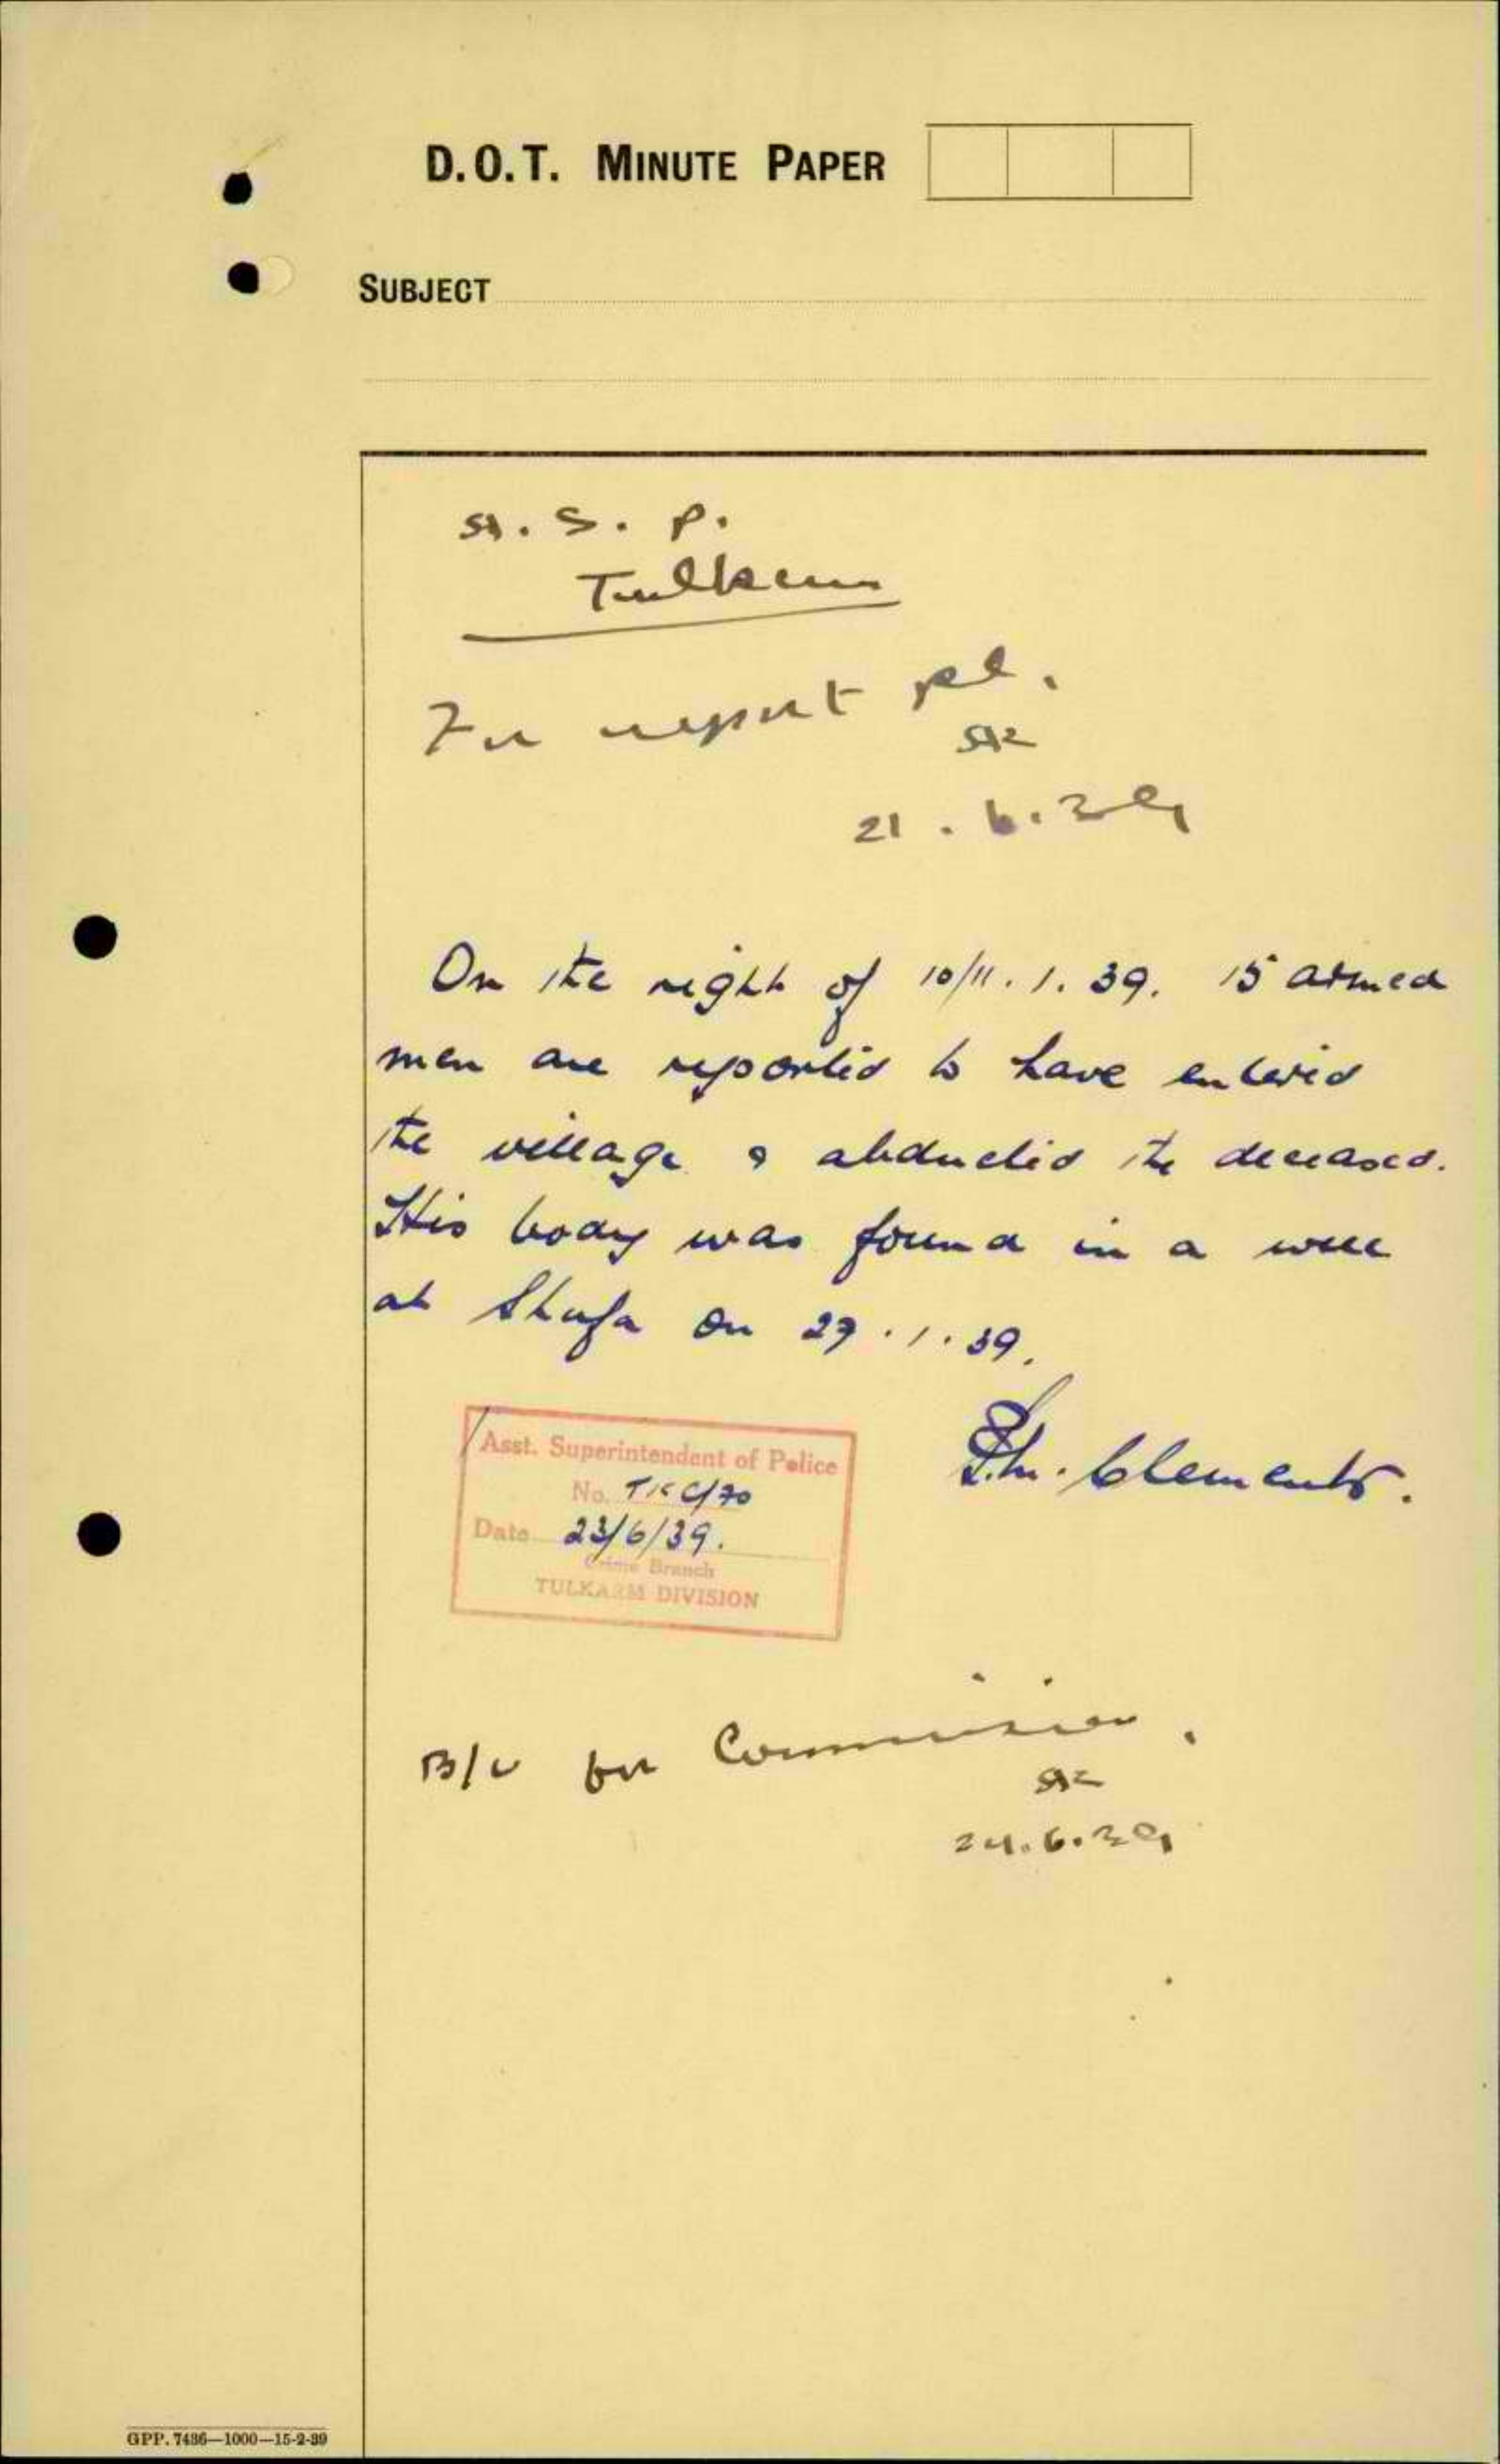 D.O.T. MINUTE PAPER
SUBJECT
A. S. P.
Tulkarm
For report pl.
21.6.39
On the night of 10/11.1.39. 15 armed
men are reported to have entered
the village & abducted the deceased.
His body was found in a well
at Shufa on 27.1.39.
Clements.
Asst. Superintendent of Police
No. TKC/70
Date 23/6/39.
Crime Branch
TULKARM DIVISION
B/U for Commission.
24.6.39
GPP. 7436—1000—15-2-39